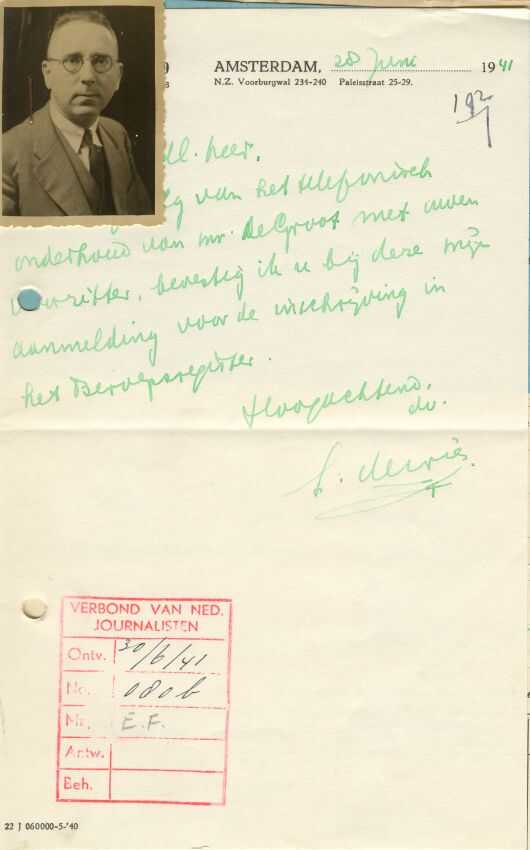 AMSTERDAM, 28 Juni 1941
N.Z. Voorburgwal 234-240 Paleisstraat 25-29.
192
dl. heer,
van het telefonisch
onderhoud van mr. De Groot met uwen
voorzitter, bevestig ik u bij deze mijn
aanmelding voor de inschrijving in
het Beroepsregister.
Hoogachtend,
dv.
S. de Vries
VERBOND VAN NED.
JOURNALISTEN
Ontv. 30/6/41
No. 080b
Na. E.F.
Antw.
Beh.
22 J 060000-5-'40